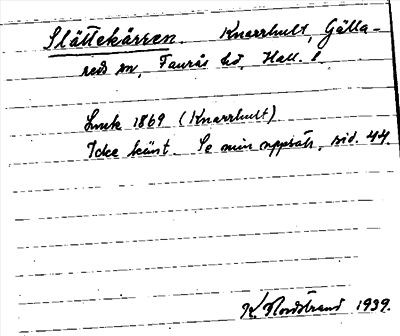 Slättekärren. Knarrhult, Gälla-
red sn, Faurås hd, Hall. l.
Lmk 1869 (Knarrhult)
Icke känt. Se min uppsats, sid. 44.
K. Nordstrand 1939.